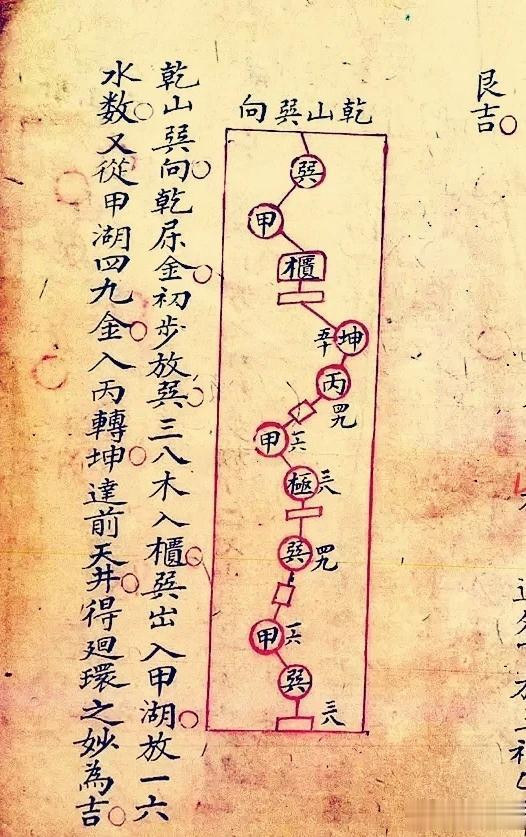 艮吉
乾山巽向
巽
甲
櫃
坤
五十
丙
四九
甲
一六
極
三八
巽
四九
甲
一六
巽
三八
乾山巽向乾屬金初步放巽三八木入櫃巽出入甲湖放一六
水数又從甲湖四九金入丙轉坤達前天井得廻環之妙為吉